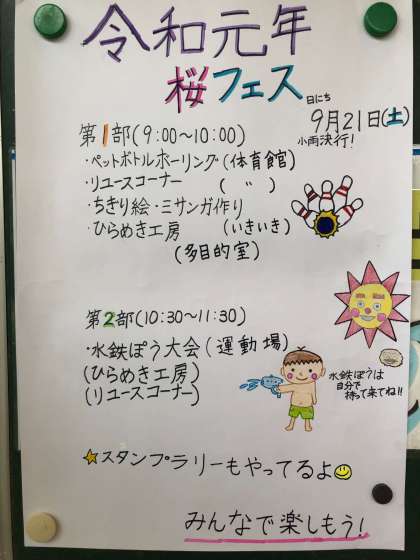 令和元年
桜フェス
日にち
9月21日(土)
小雨決行!
第1部(9:00〜10:00)
・ペットボトルボーリング(体育館)
・リユースコーナー ( 〃 )
・ちぎり絵・ミサンガ作り
・ひらめき工房 (いきいき)
(多目的室)
第2部(10:30〜11:30)
・水鉄ぽう大会(運動場)
(ひらめき工房)
(リユースコーナー)
水鉄ぽうは
自分で
持って来てね!!
☆スタンプラリーもやってるよ
みんなで楽しもう!